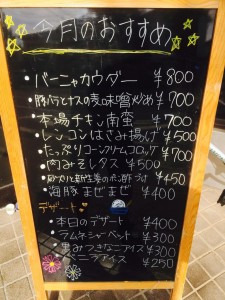 今月のおすすめ
・バーニャカウダー ¥800
・豚バラとナスの麦味噌炒め ¥700
・本場チキン南蛮 ¥700
・レンコンはさみ揚げ ¥500
・たっぷりコーンクリームコロッケ ¥700
・肉みそレタス ¥500
・砂ズリと新生姜のポン酢 ¥450
・海豚まぜまぜ ¥400
デザート
・本日のデザート ¥400
・ラムネシャーベット ¥300
・黒みつきなこアイス ¥300
・バニラアイス ¥250